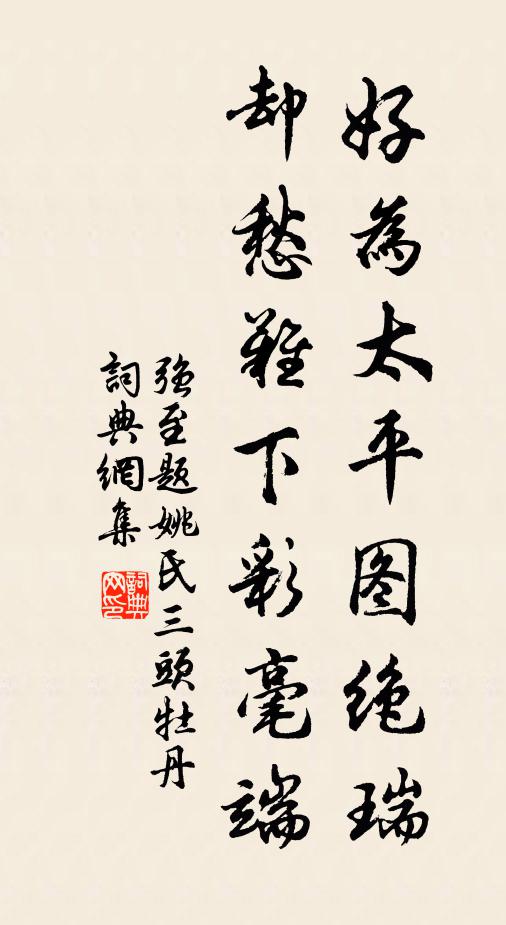 好為太平图绝瑞
却愁難下彩毫端
強至題姚氏三頭牡丹
詞典網集
詞典网印